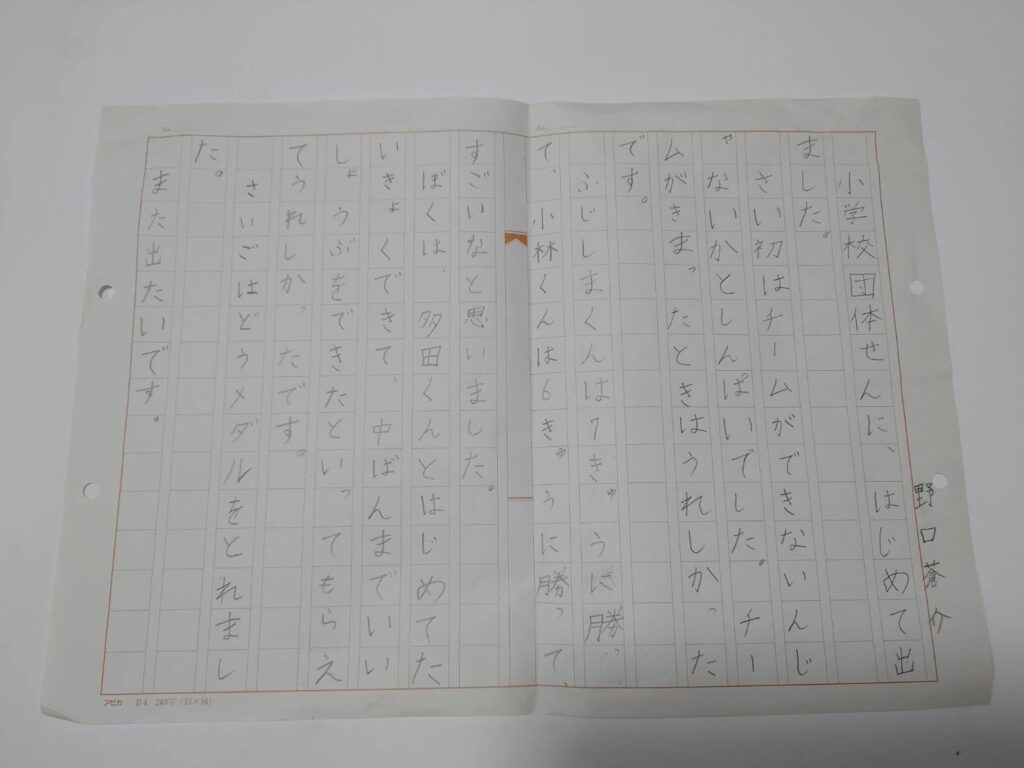 野口蒼介
小学校団体せんに、はじめて出
ました。
さい初はチームができないんじ
ゃないかとしんぱいでした。チー
ムがきまったときはうれしかった
です。
ふじしまくんは7きゅうに勝っ
て、小林くんは6きゅうに勝って、
すごいなと思いました。
ぼくは、多田くんとはじめてた
いきょくできて、中ばんまでいい
しょうぶをできたといってもらえ
てうれしかったです。
さいごはどうメダルをとれまし
た。
また出たいです。
No.
No.
アピカ B4 240字(15×16)